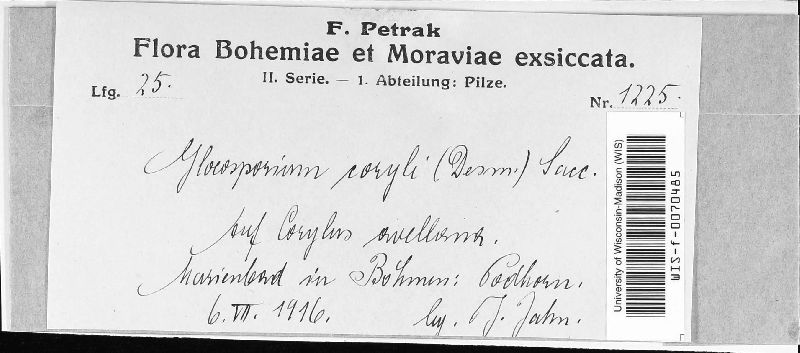 F. Petrak
Flora Bohemiae et Moraviae exsiccata.
II. Serie. — 1. Abteilung: Pilze.
Lfg. 25.
Nr. 1225.
Gloeosporium coryli (Desm.) Sacc.
Auf Corylus avellana.
Marienbad in Böhmen: Podhorn.
6. VII. 1916.
leg. J. Jahn.
University of Wisconsin-Madison (WIS)
WIS-f-0070485